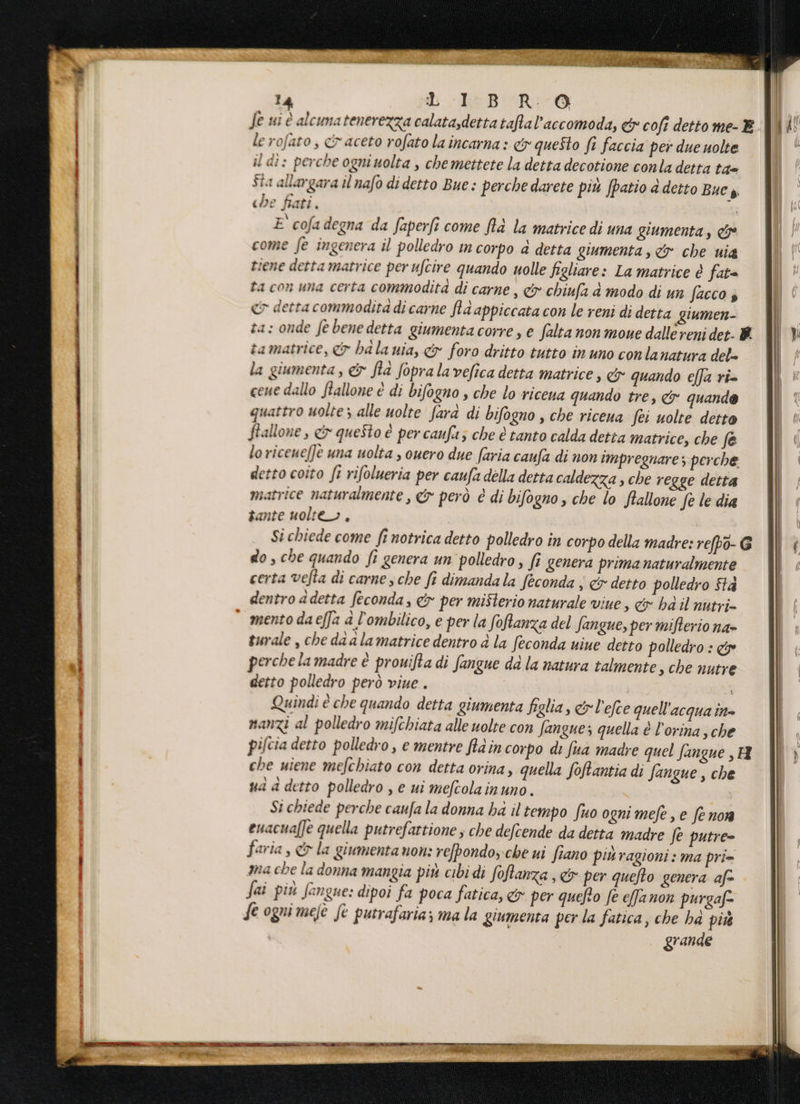 14 LIBRO
ſe ui è alcuna tenerezza calata, detta taſta l'accomoda, & coſi detto me- E
le roſato, & aceto roſato la incarna: & queſto ſi faccia per due uolte
il di: perche ogni uolta, che mettete la detta decotione con la detta ta-
ſta allargara il naſo di detto Bue: perche darete più ſpatio à detto Bue,
che fiati.
E' coſa degna da ſaperſi come ſtà la matrice di una giumenta, &
come ſe ingenera il polledro in corpo à detta giumenta, & che uia
tiene detta matrice per uſcire quando uolle figliare: La matrice è fat-
ta con una certa commodità di carne, & chiuſa à modo di un ſacco,
& detta commodità di carne ſtà appiccata con le reni di detta giumen-
ta: onde ſe bene detta giumenta corre, e ſalta non moue dalle reni det- F
ta matrice, & hà la uia, & foro dritto tutto in uno con la natura del-
la giumenta, & ſtà ſopra la veſica detta matrice, & quando eſſa ri-
ceue dallo ſtallone è di biſogno, che lo riceua quando tre, & quando
quattro uolte; alle uolte farà di biſogno, che riceua ſei uolte detto
ſtallone, & queſto è per cauſa; che è tanto calda detta matrice, che ſe
lo riceueſſe una uolta, ouero due faria cauſa di non impregnare; perche
detto coito ſi riſolueria per cauſa della detta caldezza, che regge detta
matrice naturalmente, & però è di biſogno, che lo ſtallone ſe le dia
tante uolte.
Si chiede come ſi notrica detto polledro in corpo della madre: reſpō- G
do, che quando ſi genera un polledro, ſi genera prima naturalmente
certa veſta di carne, che ſi dimanda la ſeconda, & detto polledro ſtà
dentro à detta ſeconda, & per miſterio naturale viue, & hà il nutri-
mento da eſſa à l'ombilico, e per la ſoſtanza del ſangue, per miſterio na-
turale, che dà à la matrice dentro à la ſeconda uiue detto polledro: &
perche la madre è prouiſta di ſangue dà la natura talmente, che nutre
detto polledro però viue.
Quindi è che quando detta giumenta figlia, & l'eſce quell'acqua in-
nanzi al polledro miſchiata alle uolte con ſangue; quella è l'orina, che
piſcia detto polledro, e mentre ſtà in corpo di ſua madre quel ſangue, H
che uiene meſchiato con detta orina, quella ſoſtantia di ſangue, che
uà à detto polledro, e ui meſcola in uno.
Si chiede perche cauſa la donna hà il tempo ſuo ogni meſe, e ſe non
euacuaſſe quella putrefattione, che deſcende da detta madre ſe putre-
faria, & la giumenta non: reſpondo, che ui ſiano più ragioni: ma pri-
ma che la donna mangia più cibi di ſoſtanza, & per queſto genera aſ-
ſai più ſangue: dipoi fa poca fatica, & per queſto ſe eſſa non purgaſ-
ſe ogni meſe ſe putrafaria; ma la giumenta per la fatica, che hà più
grande